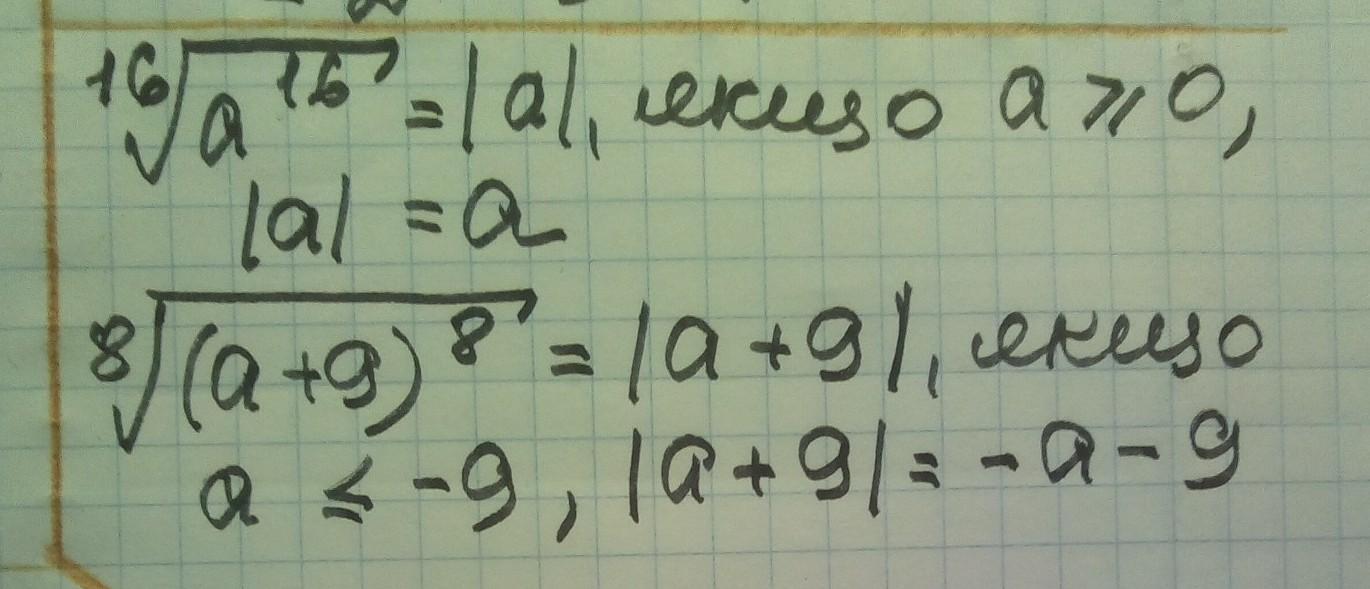 ¹⁶√a¹⁶ = |a|, якщо a ⩾ 0,
|a| = a
⁸√(a+9)⁸ = |a+9|, якщо
a ≤ -9, |a+9| = -a-9